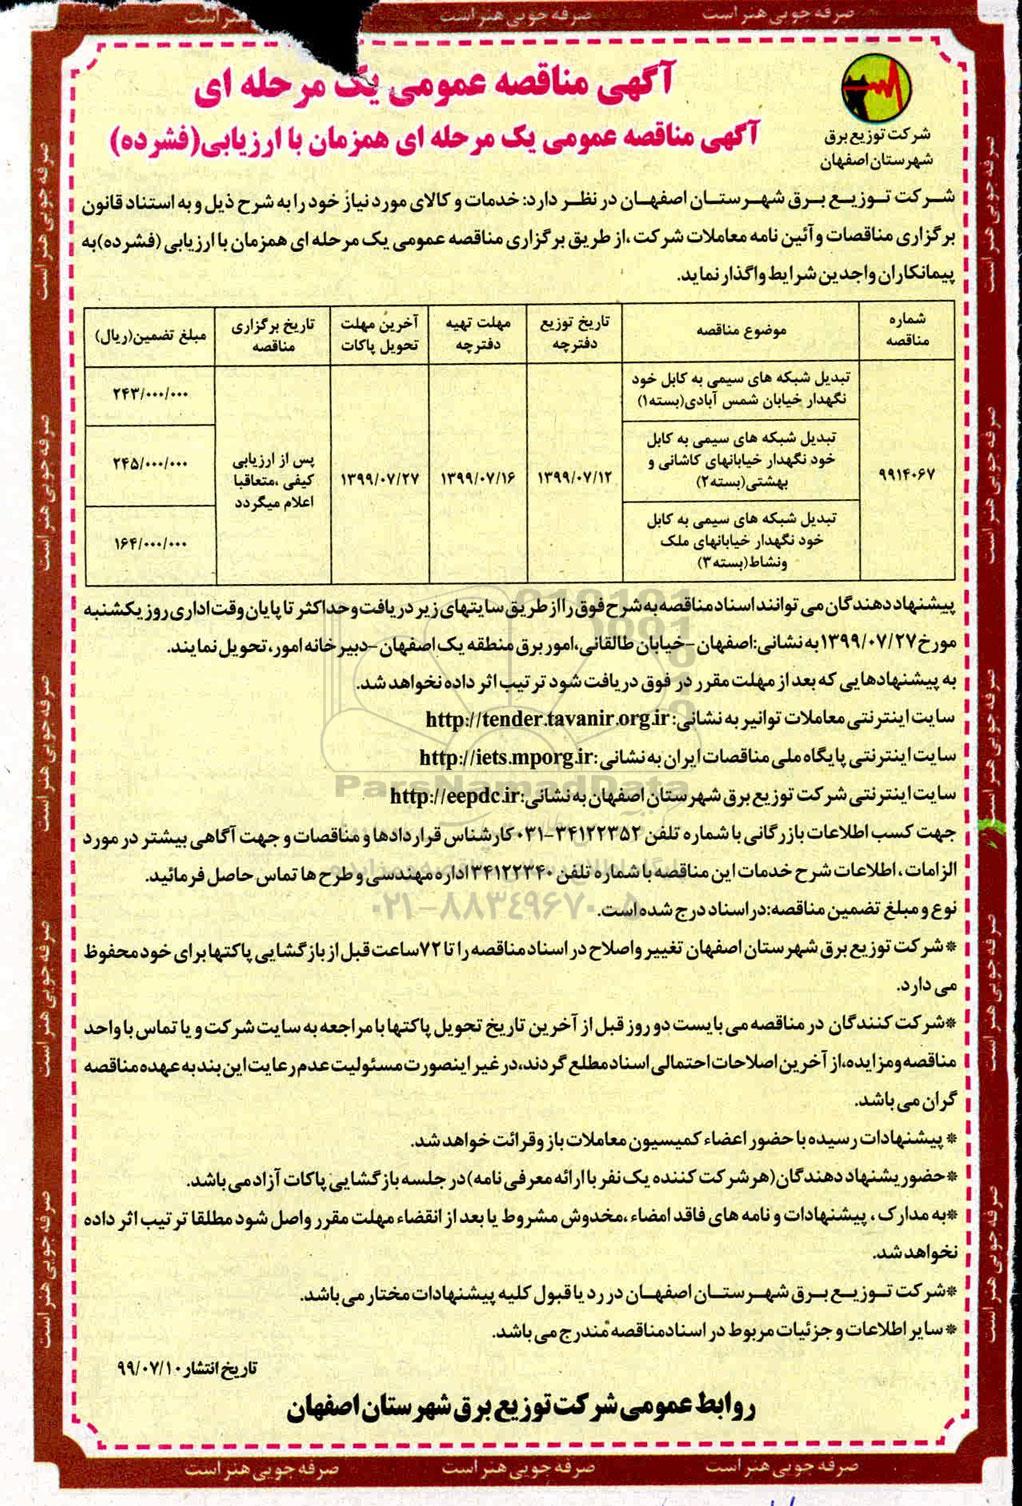 صرفه جویی هنر است
صرفه جویی هنر است
صرفه جویی هنر است
شرکت توزیع برق
شهرستان اصفهان
آگهی مناقصه عمومی یک مرحله ای
آگهی مناقصه عمومی یک مرحله ای همزمان با ارزیابی(فشرده)
شرکت توزیع برق شهرستان اصفهان در نظر دارد: خدمات و کالای مورد نیاز خود را به شرح ذیل و به استناد قانون
برگزاری مناقصات و آئین نامه معاملات شرکت ،از طریق برگزاری مناقصه عمومی یک مرحله ای همزمان با ارزیابی (فشرده)به
پیمانکاران واجدین شرایط واگذار نماید.
شماره مناقصه
موضوع مناقصه
تاریخ توزیع دفترچه
مهلت تهیه دفترچه
آخرین مهلت تحویل پاکات
تاریخ برگزاری مناقصه
مبلغ تضمین(ریال)
۹۹۱۴۰۶۷
تبدیل شبکه های سیمی به کابل خود
نگهدار خیابان شمس آبادی(بسته۱)
تبدیل شبکه های سیمی به کابل
خود نگهدار خیابانهای کاشانی و
بهشتی(بسته۲)
تبدیل شبکه های سیمی به کابل
خود نگهدار خیابانهای ملک
ونشاط(بسته۳)
۱۳۹۹/۰۷/۱۲
۱۳۹۹/۰۷/۱۶
۱۳۹۹/۰۷/۲۷
پس از ارزیابی
کیفی ،متعاقبا
اعلام میگردد
۲۴۳/۰۰۰/۰۰۰
۲۴۵/۰۰۰/۰۰۰
۱۶۴/۰۰۰/۰۰۰
پیشنهاد دهندگان می توانند اسناد مناقصه به شرح فوق را از طریق سایتهای زیر دریافت و حداکثر تا پایان وقت اداری روز یکشنبه
مورخ ۱۳۹۹/۰۷/۲۷ به نشانی:اصفهان –خیابان طالقانی،امور برق منطقه یک اصفهان –دبیرخانه امور، تحویل نمایند.
به پیشنهادهایی که بعد از مهلت مقرر در فوق دریافت شود ترتیب اثر داده نخواهد شد.
سایت اینترنتی معاملات توانیر به نشانی: http://tender.tavanir.org.ir
سایت اینترنتی پایگاه ملی مناقصات ایران به نشانی: http://iets.mporg.ir
ParsNamadData
سایت اینترنتی شرکت توزیع برق شهرستان اصفهان به نشانی: http://eepdc.ir
جهت کسب اطلاعات بازرگانی با شماره تلفن ۳۴۱۲۲۳۵۲-۰۳۱ کارشناس قراردادها و مناقصات و جهت آگاهی بیشتر در مورد
الزامات ، اطلاعات شرح خدمات این مناقصه با شماره تلفن ۳۴۱۲۲۳۴۰ اداره مهندسی و طرح ها تماس حاصل فرمائید.
۰۲۱-۸۸۳۴۹۶۷۰
نوع و مبلغ تضمین مناقصه:در اسناد درج شده است.
* شرکت توزیع برق شهرستان اصفهان تغییر واصلاح در اسناد مناقصه را تا ۷۲ساعت قبل از بازگشایی پاکتها برای خود محفوظ
می دارد.
*شرکت کنندگان در مناقصه می بایست دو روز قبل از آخرین تاریخ تحویل پاکتها با مراجعه به سایت شرکت و یا تماس با واحد
مناقصه ومزایده،از آخرین اصلاحات احتمالی اسناد مطلع گردند،در غیر اینصورت مسئولیت عدم رعایت این بند به عهده مناقصه
گران می باشد.
* پیشنهادات رسیده با حضور اعضاء کمیسیون معاملات باز وقرائت خواهد شد.
*حضور پشنهاد دهندگان(هر شرکت کننده یک نفر با ارائه معرفی نامه)در جلسه بازگشایی پاکات آزاد می باشد.
*به مدارک ، پیشنهادات و نامه های فاقد امضاء ،مخدوش مشروط یا بعد از انقضاء مهلت مقرر واصل شود مطلقا ترتیب اثر داده
نخواهد شد.
*شرکت توزیع برق شهرستان اصفهان در رد یا قبول کلیه پیشنهادات مختار می باشد.
* سایر اطلاعات و جزئیات مربوط در اسناد مناقصه مندرج می باشد.
تاریخ انتشار ۹۹/۰۷/۱۰
روابط عمومی شرکت توزیع برق شهرستان اصفهان
صرفه جویی هنر است
صرفه جویی هنر است
صرفه جویی هنر است
صرفه جویی هنر است
صرفه جویی هنر است
صرفه جویی هنر است
صرفه جویی هنر است
صرفه جویی هنر است
صرفه جویی هنر است
صرفه جویی هنر است
صرفه جویی هنر است
صرفه جویی هنر است
صرفه جویی هنر است